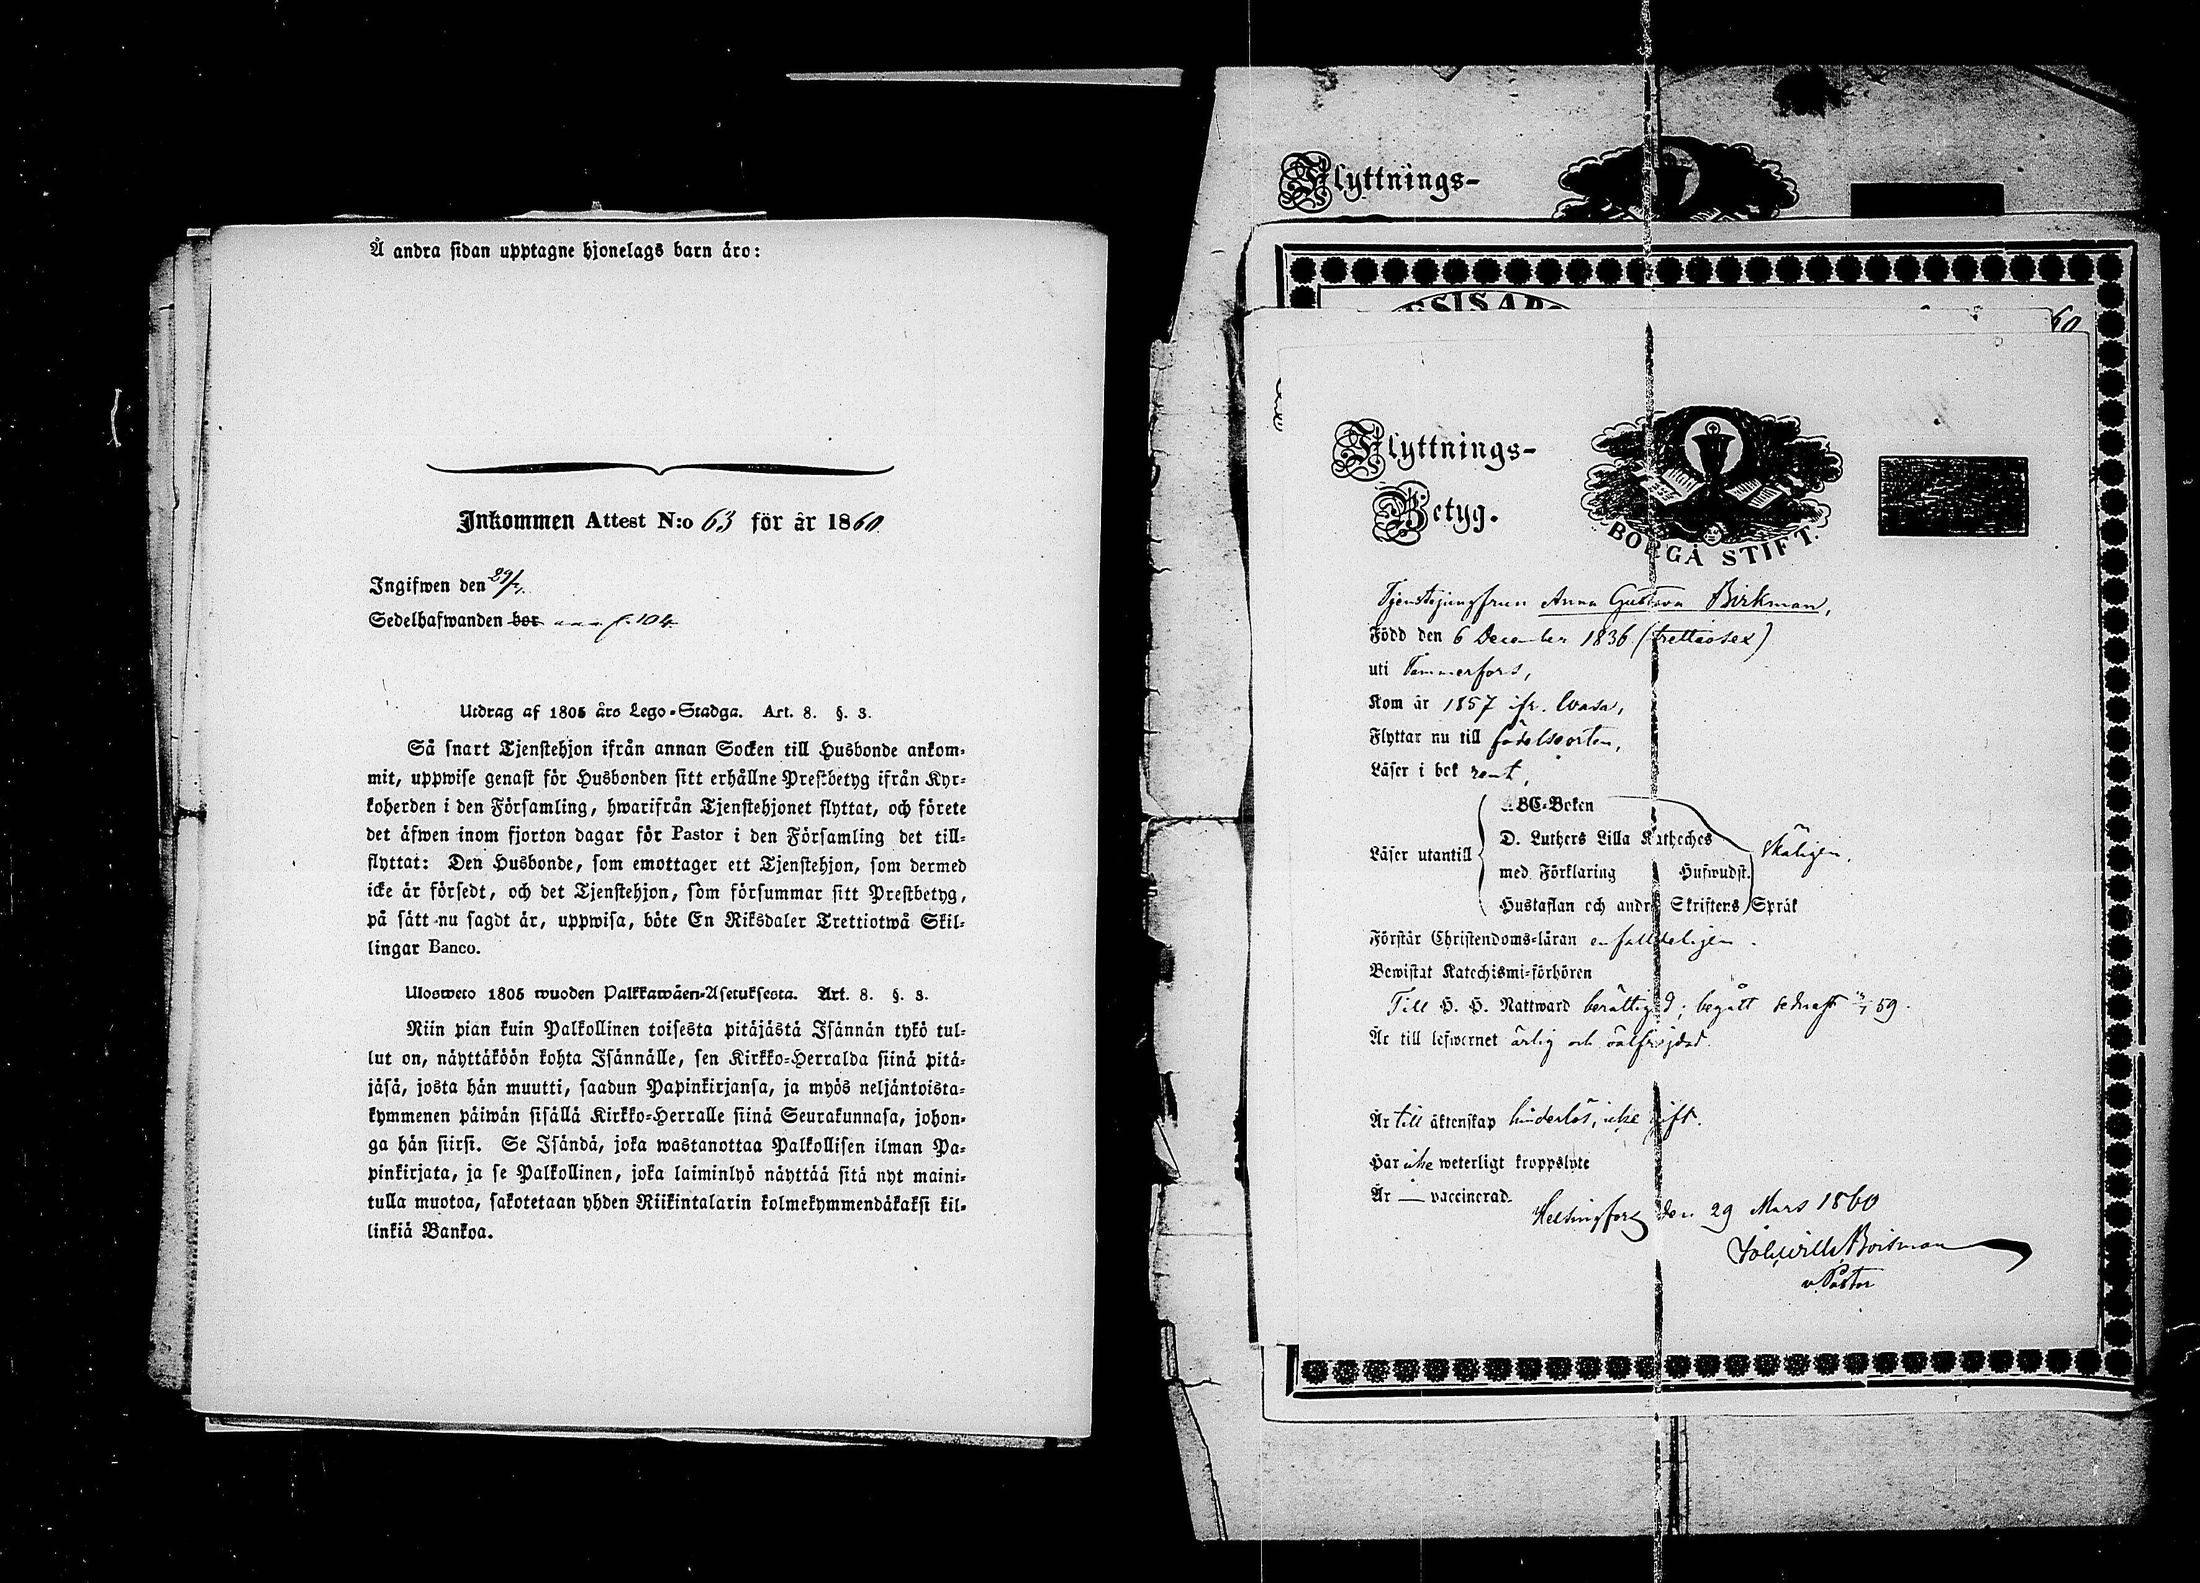 Å andra sidan upptagne hjonelags barn äro:
Inkommen Attest N:o 63 för år 1860
Ingifwen den 29/
Sedelhafwanden bor f. 104
Utdrag af 1805 års Lego-Stadga. Art. 8. §. 3.
Så snart Tjenstehjon ifrån annan Socken till Husbonde ankom-
mit, uppwise genast för Husbonden sitt erhållne Prestbetyg ifrån Kyr-
koherden i den Församling, hwarifrån Tjenstehjonet flyttat, och förete
det äfwen inom fjorton dagar för Pastor i den Församling det till-
flyttat: Den Husbonde, som emottager ett Tjenstehjon, som dermed
icke är försedt, och det Tjenstehjon, som försummar sitt Prestbetyg,
på sätt nu sagdt är, uppwisa, böte En Riksdaler Trettiotwå Skil-
lingar Banco.
Ulosweto 1805 wuoden Palkkawäen-Asetuksesta. Art. 8. §. 3.
Niin pian kuin Palkollinen toisesta pitäjästä Isännän tykö tul-
lut on, näyttäköön kohta Isännälle, sen Kirkko-Herralda siinä pitä-
jäsä, josta hän muutti, saadun Papinkirjansa, ja myös neljäntoista-
kymmenen päiwän sisällä Kirkko-Herralle siinä Seurakunnasa, johon-
ga hän siirsi. Se Isändä, joka wastanottaa Palkollisen ilman Pa-
pinkirjata, ja se Palkollinen, joka laiminlyö näyttää sitä nyt maini-
tulla muotoa, sakotetaan yhden Riikintalarin kolmekymmendäkaksi kil-
linkiä Bankoa.
Flyttnings-
60
Flyttnings-
Betyg.
BORGÅ STIFT.
Tjenstejungfrun Anna Gustava Birkman,
Född den 6 December 1836 (trettiosex)
uti Tammerfors,
Kom år 1857 ifr. Wasa,
Flyttar nu till födelseorten,
Läser i bok rent,
ABC-Boken
D. Luthers Lilla Katheches
Läser utantill skäligen.
med Förklaring Hufwudst.
Hustaflan och andra Skriftens Språk
Förstår Christendoms-läran enfalldeligen.
Bewistat Katechismi-förhören
Till H. H. Nattward berättigad; begått sednast 59.
Är till lefwernet ärlig och välfrejdad
Är till äktenskap hinderlös, icke gift.
Har icke weterligt kroppslyte
Är — vaccinerad.
Helsingfors den 29 Mars 1860
Boisman
v. Pastor